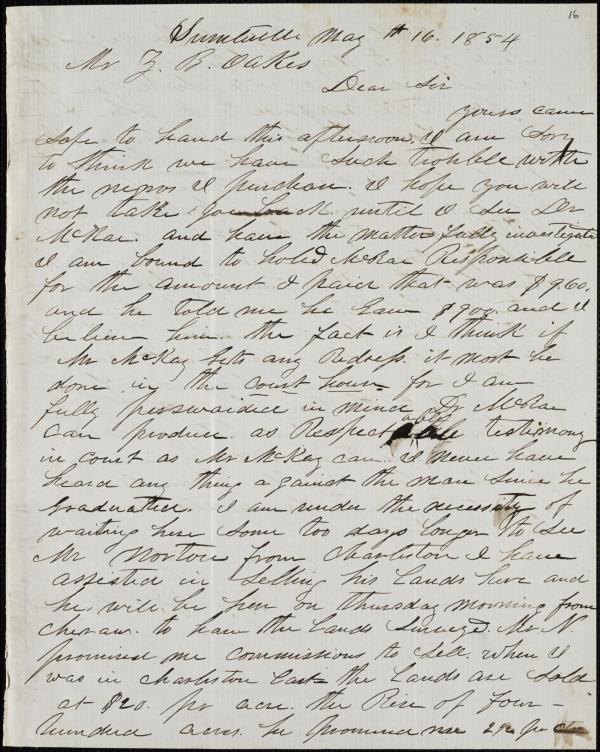 16
Sumterville May th 16. 1854
Mr Z. B. Oakes
Dear Sir
yours came
safe to hand this afternoon. I am Sory
to think we have such trouble with
the negros I purchase. I hope you will
not take Joe back. until I see Dr
McRae. and have the matter fully investigate
I am bound to hold McRae Responsible
for the amount I paid that was $960.
and he told me he Gave $900 and I
believe him. the fact is I think if
Mr McKay gets any Redress. it most be
done in the court house for I am
fully perswaided in mind Dr McRae
can produce as Respectable testimony
in court as Mr McKay can. I never have
heard any thing against the man since he
Graduated. I am under the necessity of
waiting here some too days longer to See
Mr Norton from Charleston I have
assested in Selling his Lands here and
he will be here on thursday morning from
Cheraw. to have the lands Surveyd. Mr N.
promised me commissions to Sell. when I
was in Charleston Last the Lands are Sold
at $20. pr acre. the Rise of four-
hundred acres. he promised me 2½ pr